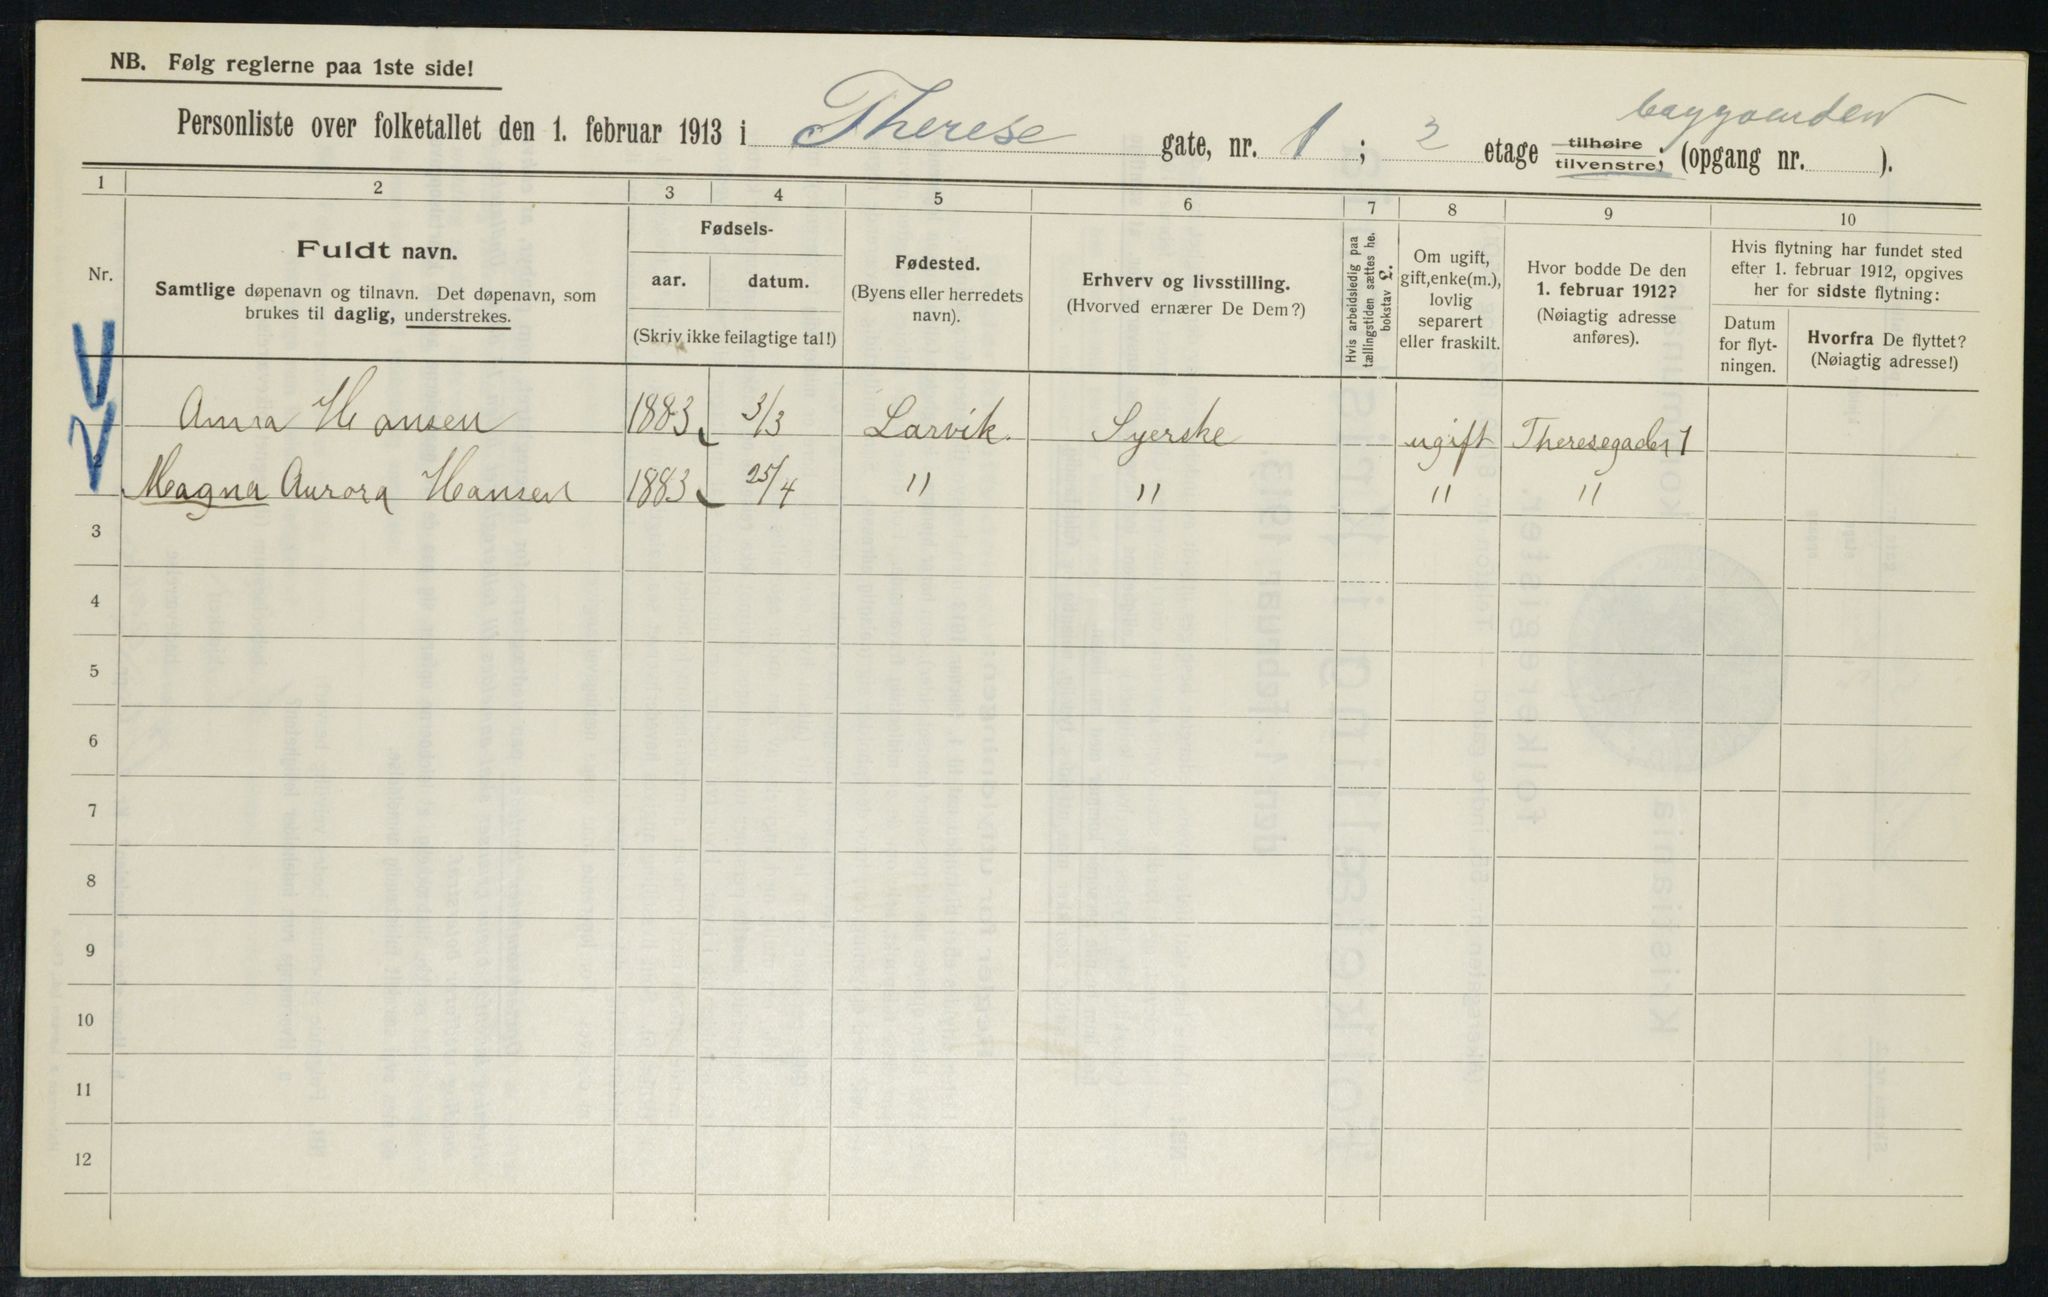 NB. Følg reglerne paa 1ste side!
baggaarden
Personliste over folketallet den 1. februar 1913 i Therese gate, nr. 1 ; 2 etage tilhøire tilvenstre; (opgang nr. ).
1 2 3 4 5 6 7 8 9 10
Nr.
Fuldt navn.
Samtlige døpenavn og tilnavn. Det døpenavn, som
brukes til daglig, understrekes.
Fødsels-
aar. datum.
(Skriv ikke feilagtige tal!)
Fødested.
(Byens eller herredets
navn).
Erhverv og livsstilling.
(Hvorved ernærer De Dem?)
Hvis arbeidsledig paa
tællingstiden sættes he.
bokstav L.
Om ugift,
gift, enke(m.),
lovlig
separert
eller fraskilt.
Hvor bodde De den
1. februar 1912?
(Nøiagtig adresse
anføres).
Hvis flytning har fundet sted
efter 1. februar 1912, opgives
her for sidste flytning:
Datum
for flyt-
ningen.
Hvorfra De flyttet?
(Nøiagtig adresse!)
1 Anna Hansen 1883 3/3 Larvik. Syerske ugift Theresegaden 1
2 Magna Aurora Hansen 1883 25/4 " " " "
3
4
5
6
7
8
9
10
11
12